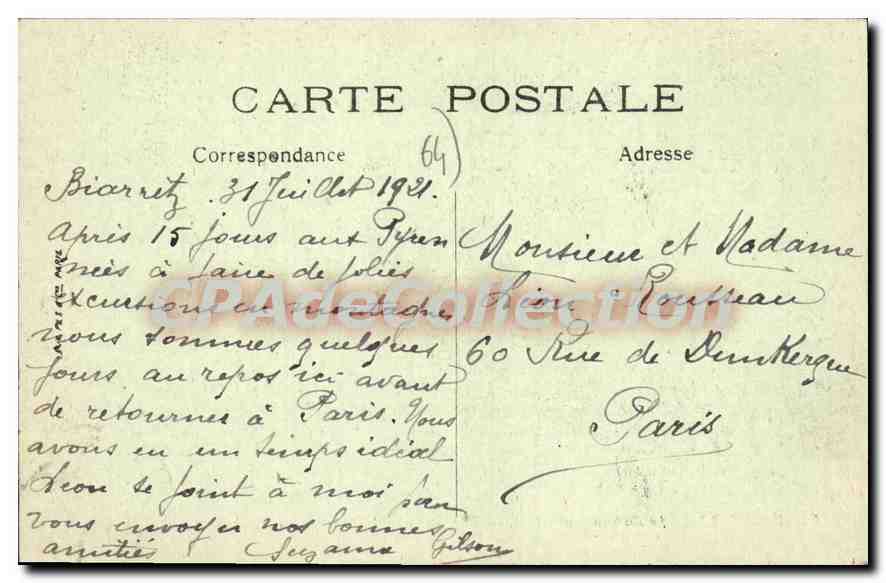 CARTE POSTALE
Correspondance
64
Adresse
Biarritz. 31 Juillet 1921.
Après 15 jours aux Pyren
neés à faire de jolies
excursions en montagnes
nous sommes quelques
jours au repos ici avant
de retourner à Paris. Nous
avons eu un temps idéal
Leon se joint à moi pour
vous envoyer nos bonnes
amitiés Suzanne Gilson
Monsieur et Madame
Léon Rousseau
60 Rue de Dunkerque
Paris
CPAdeCollection.com